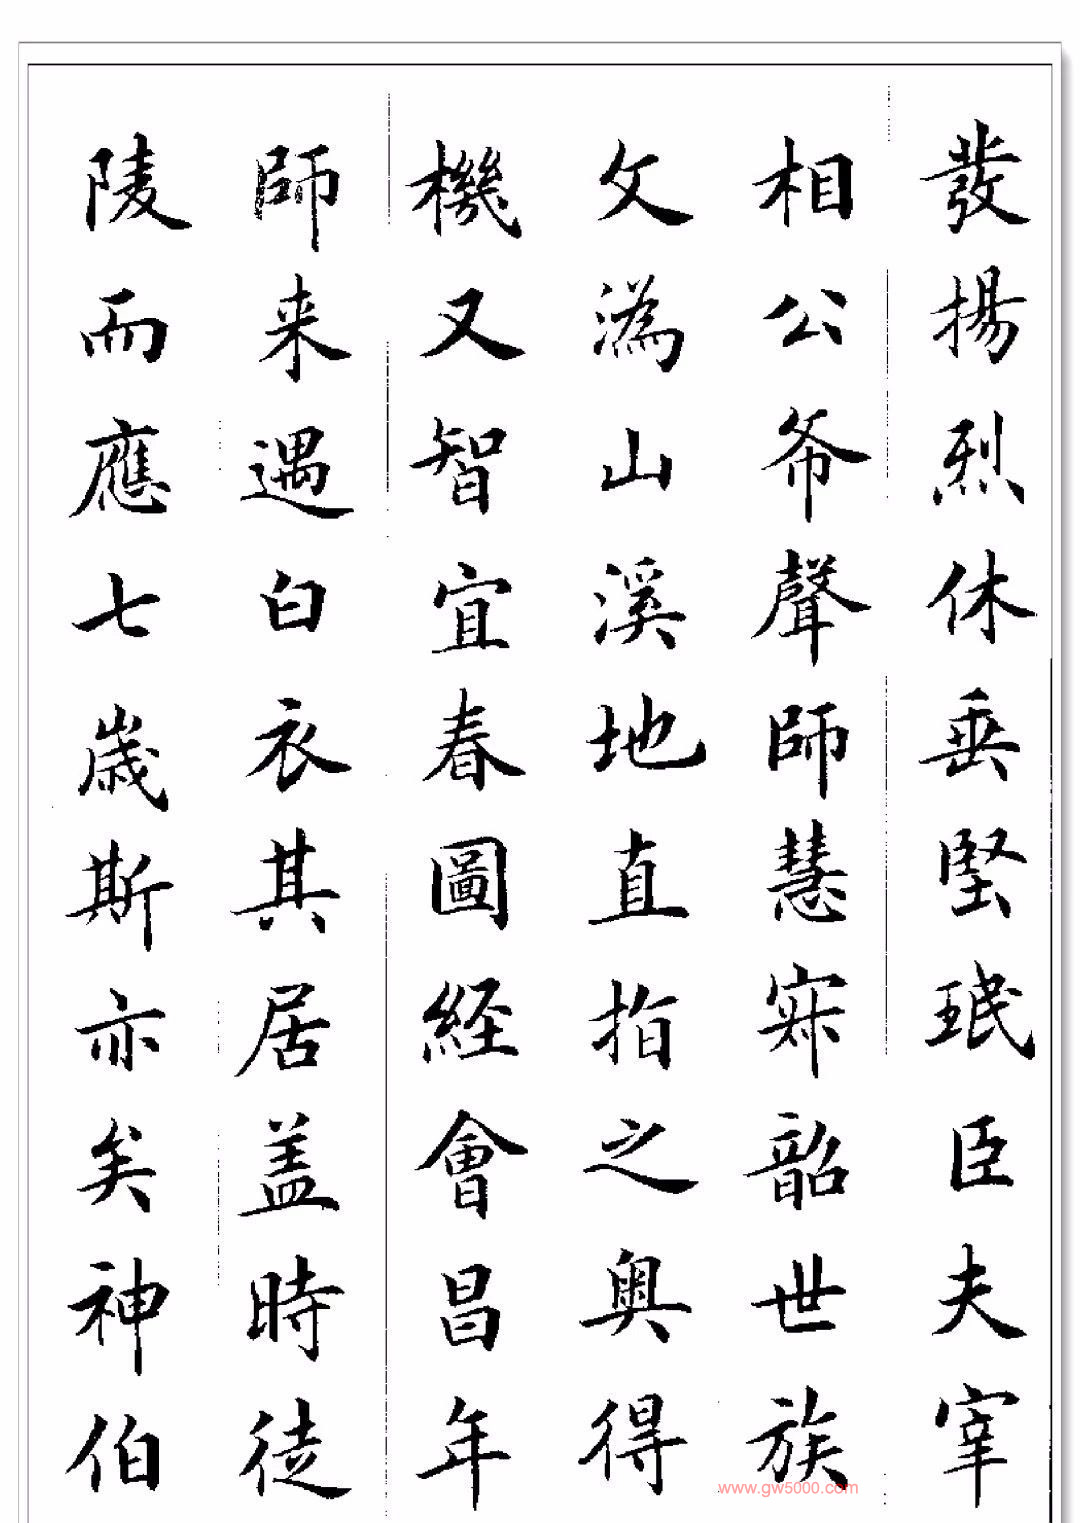 發揚烈休垂堅珉臣夫宰
相公爷聲師慧寂韶世族
文溈山溪地直指之奧得
機又智宜春圖経會昌年
師来遇白衣其居盖時徒
陵而應七歲斯亦矣神伯
www.gw5000.com